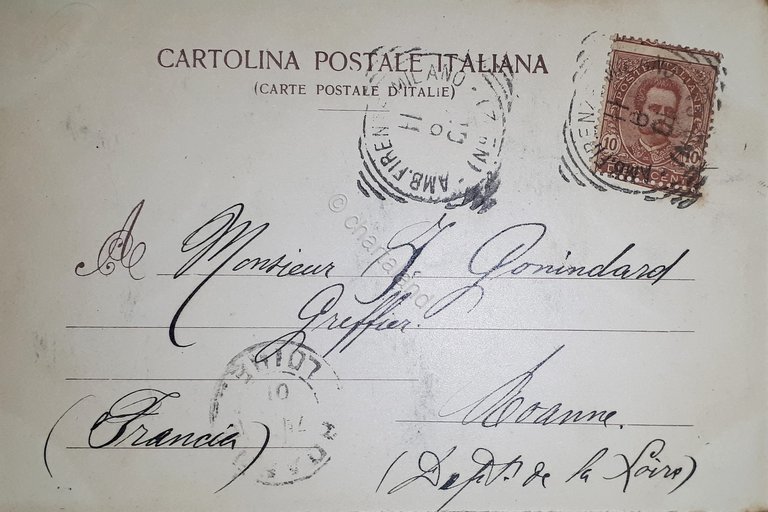 CARTOLINA POSTALE ITALIANA
(CARTE POSTALE D'ITALIE)
AMB. FIRENZE-MILANO
10 10
A Monsieur J Gonindard
Greffier.
LOIRE
Roanne.
(Francia)
(Dept. de la Loire)
© chartaland